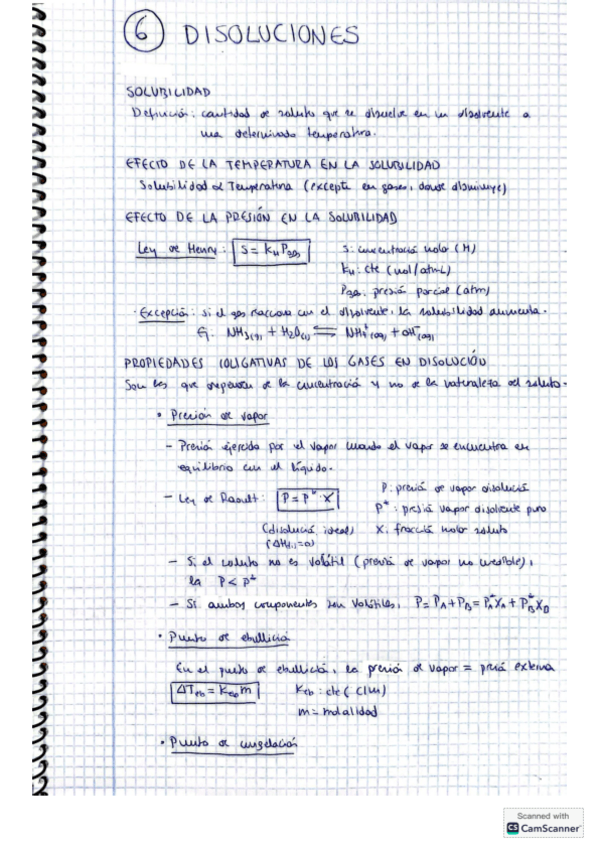 6 DISOLUCIONES
SOLUBILIDAD
Definición: cantidad de soluto que se disuelve en un disolvente a
una determinada temperatura.
EFECTO DE LA TEMPERATURA EN LA SOLUBILIDAD
Solubilidad α Temperatura (excepto en gases, donde disminuye)
EFECTO DE LA PRESIÓN EN LA SOLUBILIDAD
Ley de Henry: S = kH Pgas S: concentració molar (M)
kH: cte (mol/atm·L)
Pgas: presió parcial (atm)
· Excepción: si el gas reacciona con el disolvente, la solubilidad aumenta.
Ej: NH3(g) + H2O(l) ⇌ NH4+(aq) + OH-(aq)
PROPIEDADES COLIGATIVAS DE LOS GASES EN DISOLUCIÓN
Son las que dependen de la concentració y no de la naturaleza del soluto.
• Presión de vapor
- Presió ejercida por el vapor cuando el vapor se encuentra en
equilibrio con el líquido.
- Ley de Raoult: P = P*·X P: presió de vapor disolució
P*: presió vapor disolvente puro
(disolució ideal) X: fracció molar soluto
- Si el soluto no es volátil (presió de vapor no medible),
la P < P*
- Si ambos componentes son volátiles, P = PA + PB = P*A XA + P*B XB
• Punto de ebullició
En el punto de ebullició, la presión de vapor = presió externa
ΔTeb = Keb m Keb: cte (C/M)
m = molalidad
• Punto de congelación
Scanned with
CS CamScanner